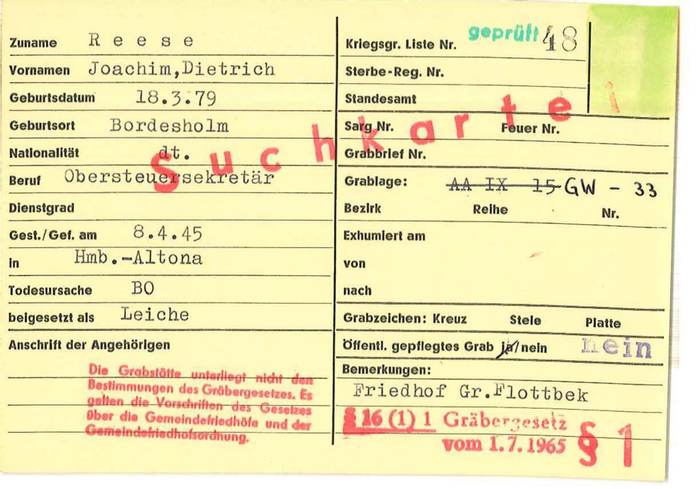 Zuname Reese
Vornamen Joachim,Dietrich
Geburtsdatum 18.3.79
Geburtsort Bordesholm
Nationalität dt.
Beruf Obersteuersekretär
Dienstgrad
Gest./Gef. am 8.4.45
in Hmb.-Altona
Todesursache BO
beigesetzt als Leiche
Anschrift der Angehörigen
Die Grabstätte unterliegt nicht den
Bestimmungen des Gräbergesetzes. Es
gelten die Vorschriften des Gesetzes
über die Gemeindefriedhöfe und der
Gemeindefriedhofsordnung.
Suchkartei
Kriegsgr. Liste Nr. geprüft 48
Sterbe-Reg. Nr.
Standesamt
Sarg Nr. Feuer Nr.
Grabbrief Nr.
Grablage: AA IX 15 GW - 33
Bezirk Reihe Nr.
Exhumiert am
von
nach
Grabzeichen: Kreuz Stele Platte
Öffentl. gepflegtes Grab ja/nein nein
Bemerkungen:
Friedhof Gr.Flottbek
§ 16 (1) 1 Gräbergesetz
vom 1.7.1965
§ 1